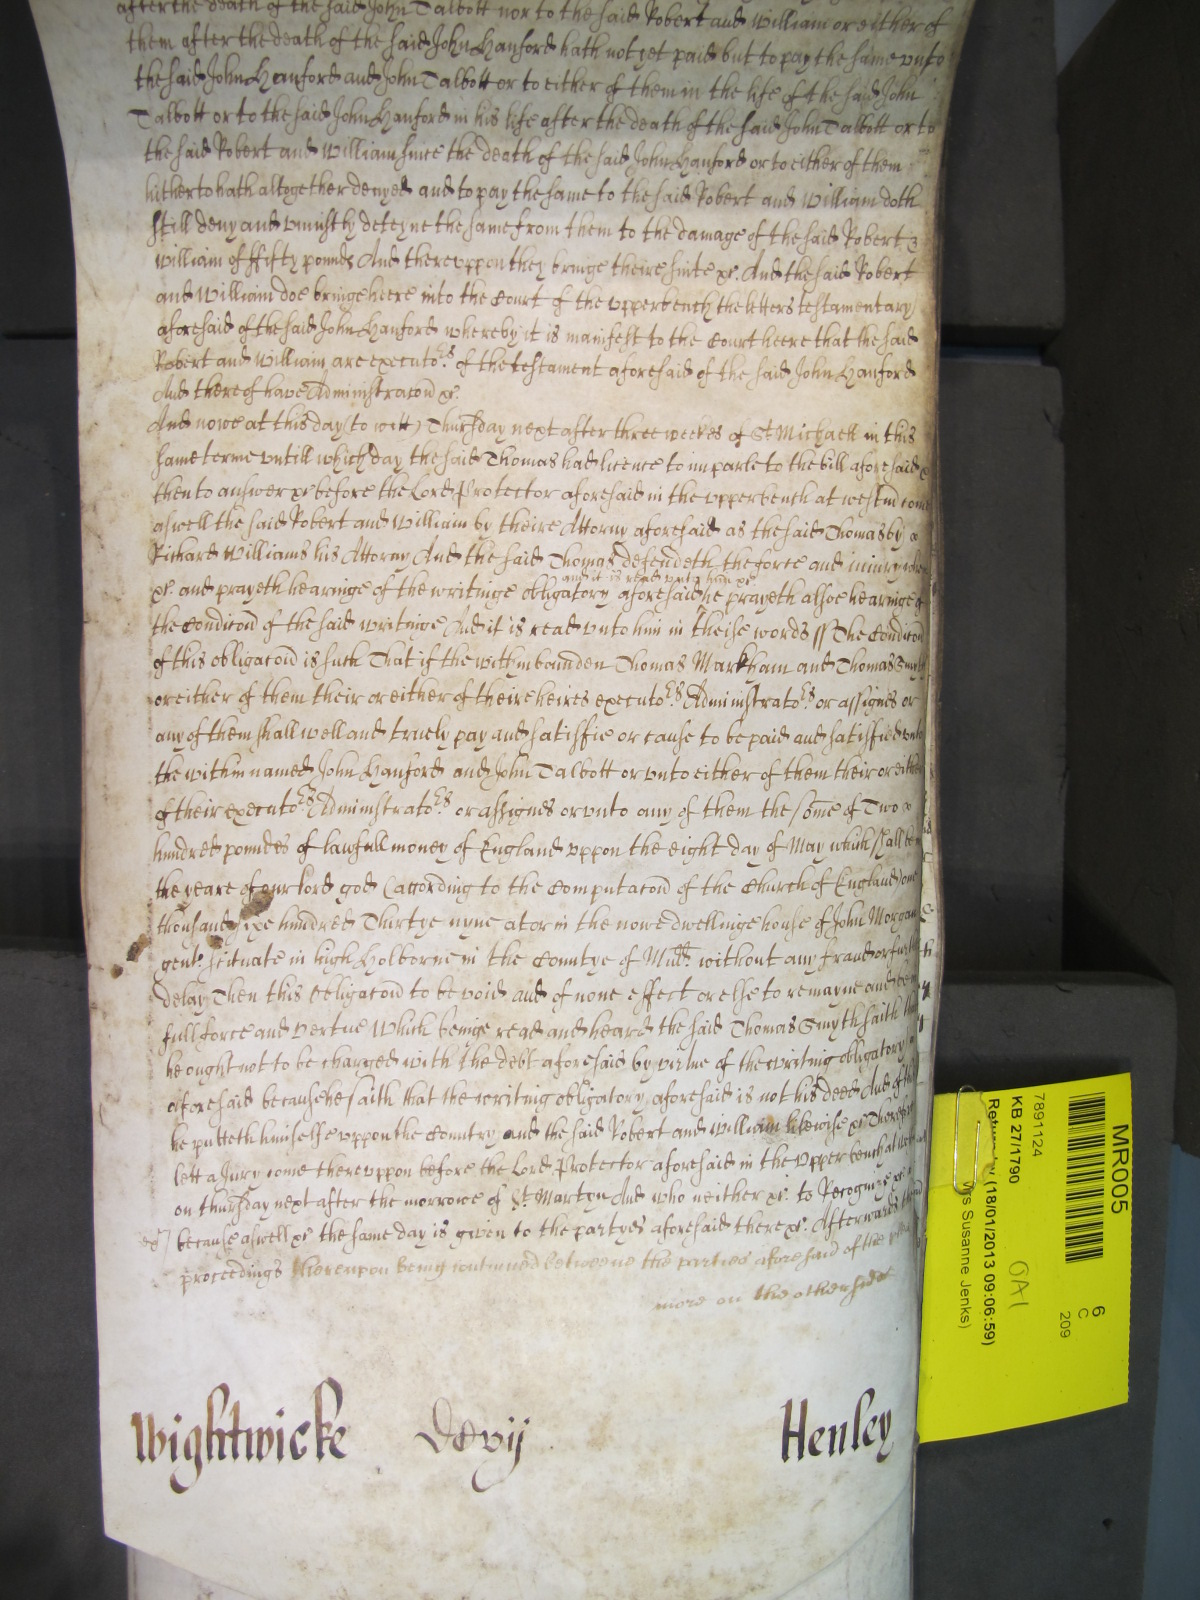 after the death of the said John Talbott nor to the said Robert and William or either of
them after the death of the said John Hanford hath not yet paid but to pay the same unto
the said John Hanford and John Talbott or to either of them in the life of the said John
Talbott or to the said John Hanford in his life after the death of the said John Talbott or to
the said Robert and William since the death of the said John Hanford or to either of them
hitherto hath altogether denyed and to pay the same to the said Robert and William doth
still deny and uniustly deteyne the same from them to the damage of the said Robert &
William of ffifty pounds And thereuppon they bringe theire suite &c. And the said Robert
and William doe bringe heere into the Court of the upperbench the letters testamentary
aforesaid of the said John Hanford whereby it is manifest to the Court heere that the said
Robert and William are executors of the testament aforesaid of the said John Hanford
And thereof have Administracon &c.
And nowe at this day (to witt) Thursday next after three weekes of St Michaell in this
same terme untill which day the said Thomas had licence to imparle to the bill aforesaid &
then to answer &c before the Lord Protector aforesaid in the upperbench at Westm come
aswell the said Robert and William by theire Attorny aforesaid as the said Thomas by
Richard Williams his Attorny And the said Thomas defendeth the force and iniury when
&c. and prayeth hearinge of the writinge obligatory aforesaid and it is read unto him &c he prayeth alsoe hearinge of
the Condicon of the said writinge And it is read unto him in theise words ss The Condicon
of this obligacon is such That if the within bounden Thomas Markham and Thomas Smyth
or either of them their or either of theire heires executors Administrators or assignes or
any of them shall well and truely pay and satisfie or cause to be paid and satisfied unto
the within named John Hanford and John Talbott or unto either of them their or either
of their executors Administrators or assignes or unto any of them the some of Two
hundred poundes of lawfull money of England uppon the eight day of May which shall be
the yeare of our lord god (according to the Computacon of the Church of England) one
thousand sixe hundred Thirtye nyne at or in the nowe dwellinge house of John Morgan
gent. scituate in high Holborne in the Countye of Midd. without any fraud or further
delay Then this Obligacon to be void and of none effect or else to remayne and
full force and vertue Which beinge read and heard the said Thomas Smyth saith that
he ought not to be charged with the debt aforesaid by virtue of the writing obligatory
aforesaid because he saith that the writing obligatory aforesaid is not his deed And of this
he putteth himselfe uppon the Country and the said Robert and William likewise &c Therefore
lett a Jury come thereuppon before the Lord Protector aforesaid in the Upperbench at
on thursday next after the morrowe of St Martyn And who neither &c. to Recognize &c.
because aswell &c the same day is given to the partyes aforesaid there &c. Afterwards
proceedings thereupon being continued betweene the parties aforesaid of the
more on the otherside
Wightwicke Levy Henley
MR005
6
C
209
7891124
KB 27/1790
GA1
(18/01/2013 09:06:59)
Ms Susanne Jenks)